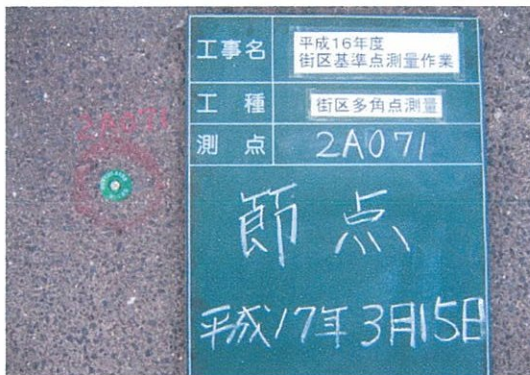 工事名
平成16年度
街区基準点測量作業
工種
街区多角点測量
測点
2A071
節点
平成17年3月15日
2A071